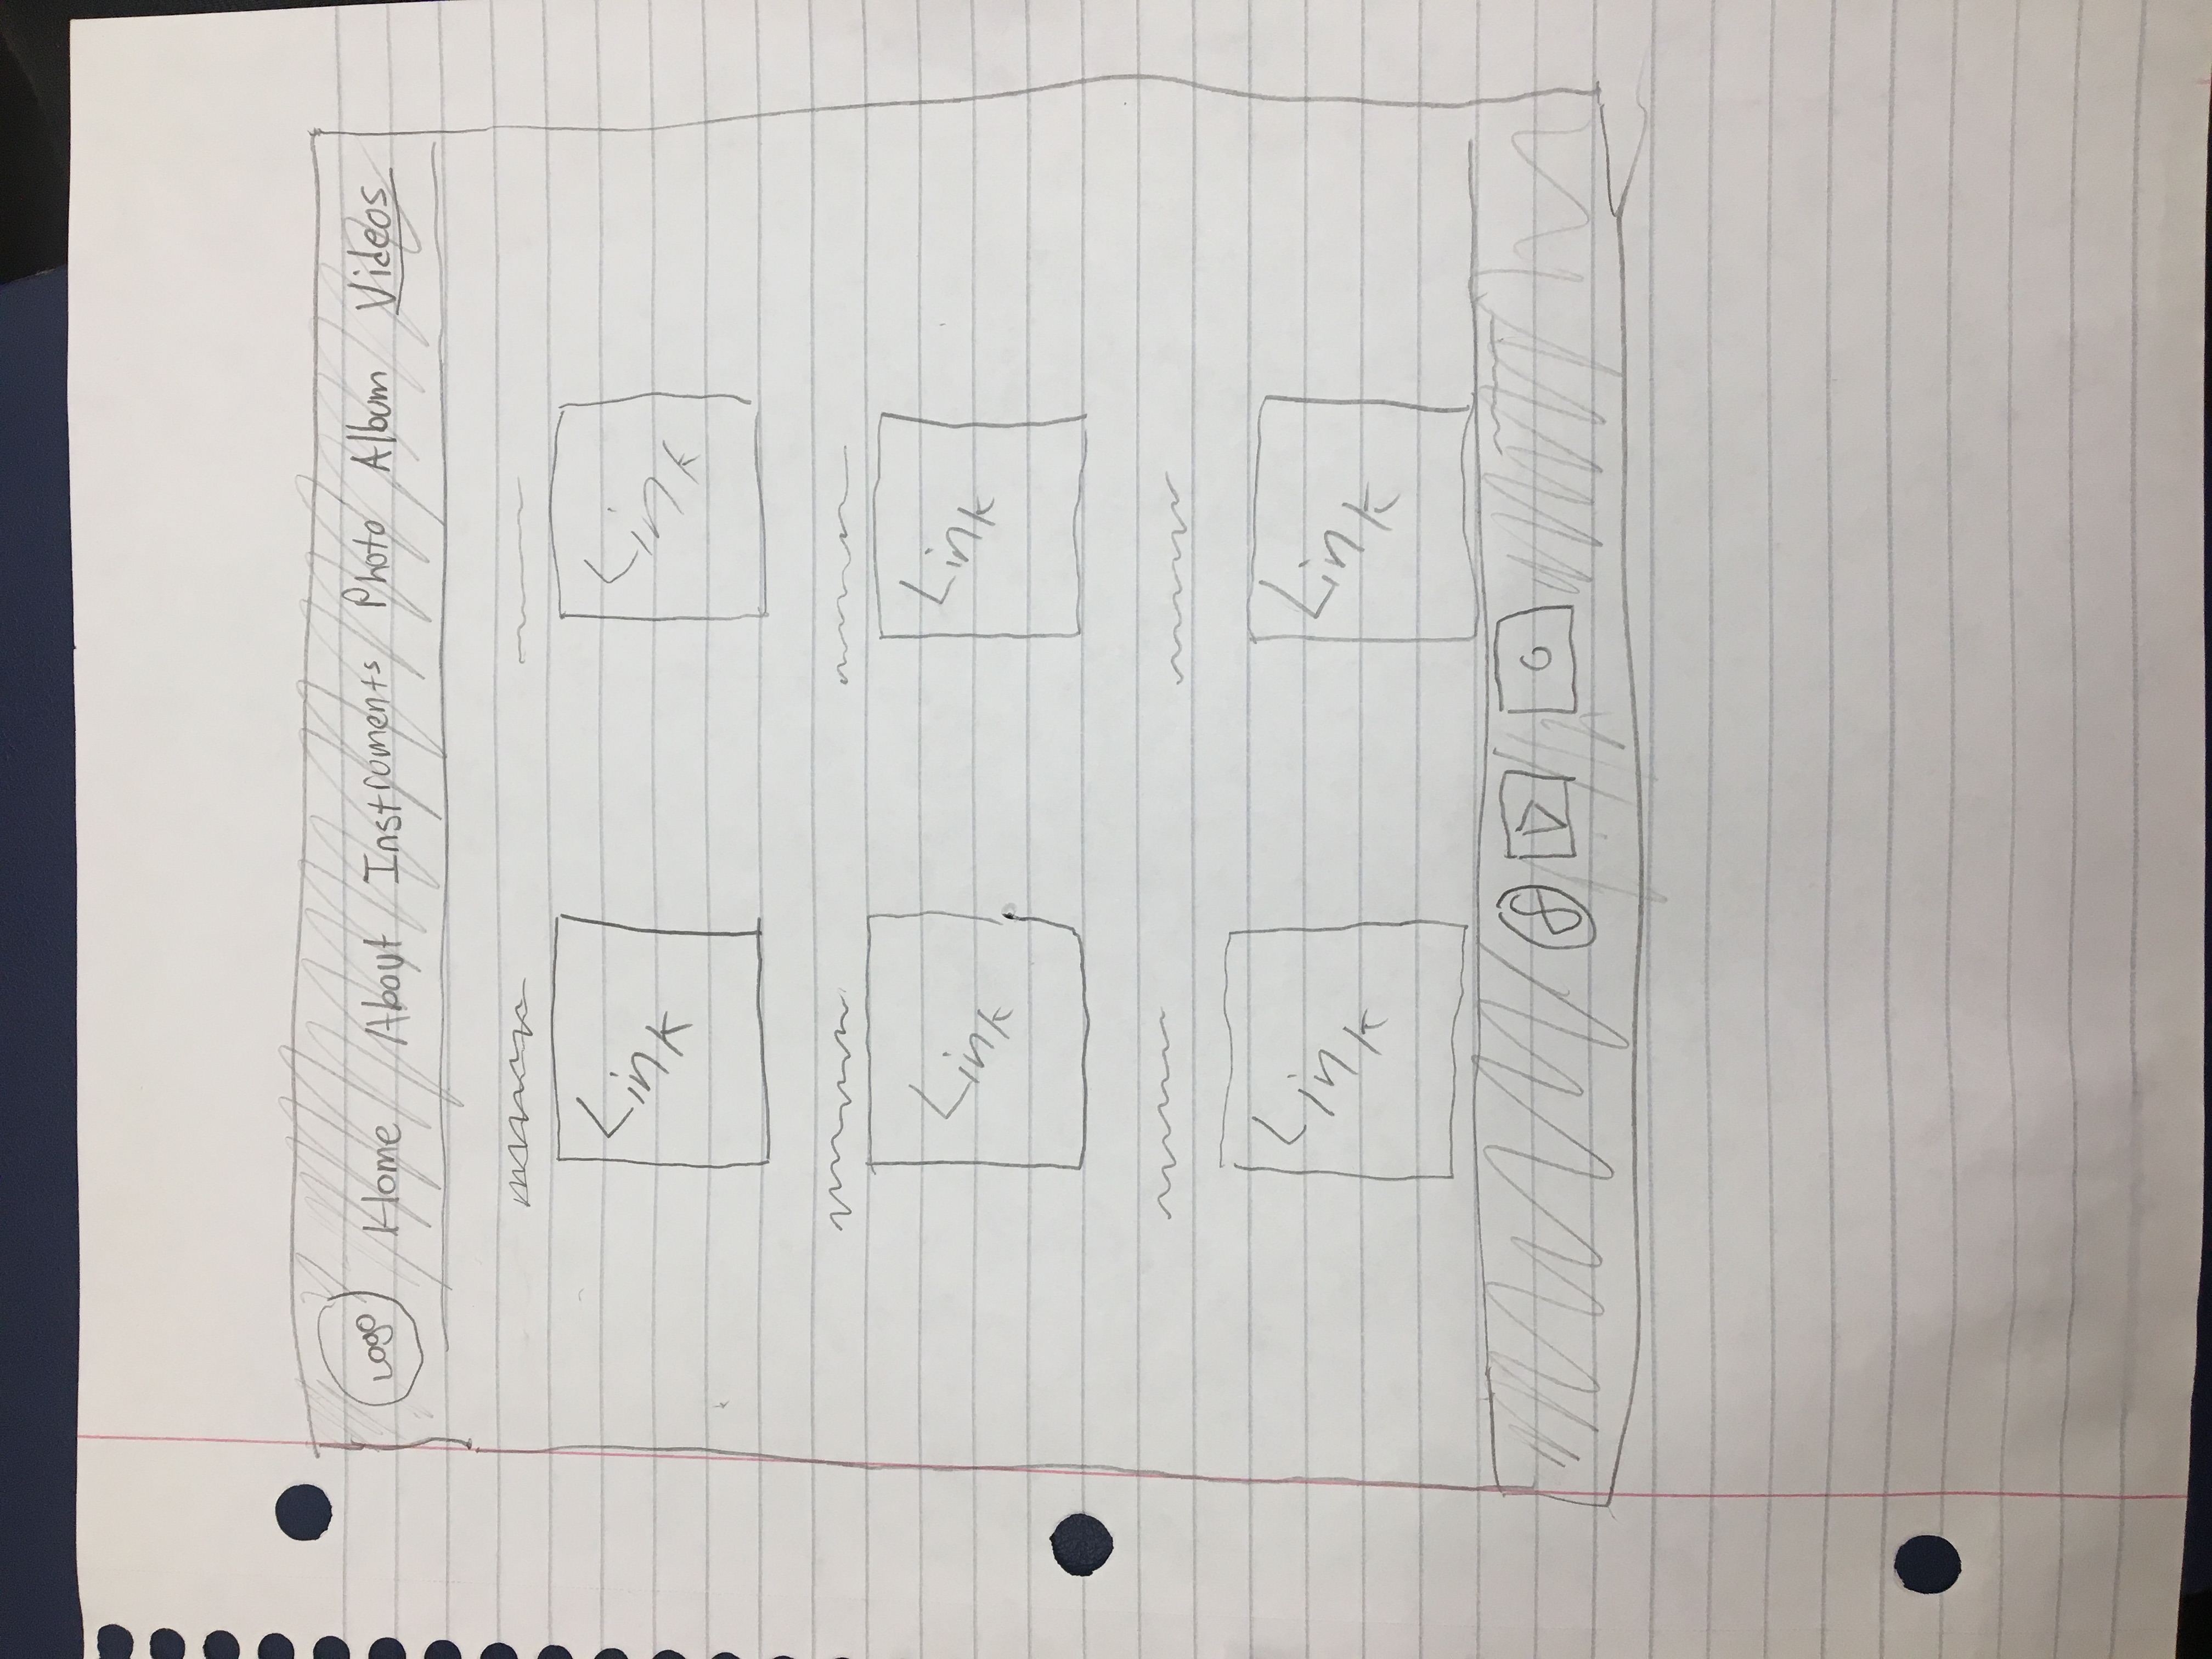 Logo Home About Instruments Photo Album Videos
Link Link
Link Link
Link Link